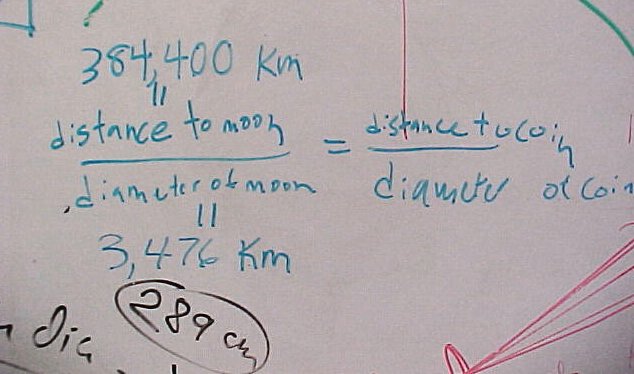 384,400 Km
=
distance to moon = distance to coin
diameter of moon diameter of coin
=
3,476 Km
289 cm
dia